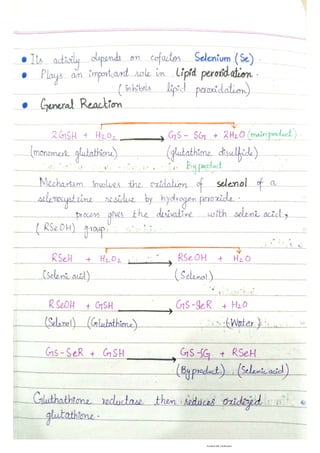 • Its activity depends on cofactor Selenium (Se).
• Plays an important role in Lipid peroxidation.
(inhibits lipid peroxidation)
• General Reaction
2GSH + H2O2 → GS - SG + 2H2O (main product)
(monomeric glutathione) (glutathione disulfide)
By product
Mechanism involves the oxidation of selenol of a
selenocysteine residue by hydrogen peroxide.
process gives the derivative with selenic acid,
(RSeOH) group.
RSeH + H2O2 → RSeOH + H2O
(Selenic acid) (Selenol)
RSeOH + GSH → GS-SeR + H2O
(Selenol) (Glutathione) (Water)
GS-SeR + GSH → GS-SG + RSeH
(By product) (Selenic acid)
Gluthathione reductase then reduces oxidized
glutathione.